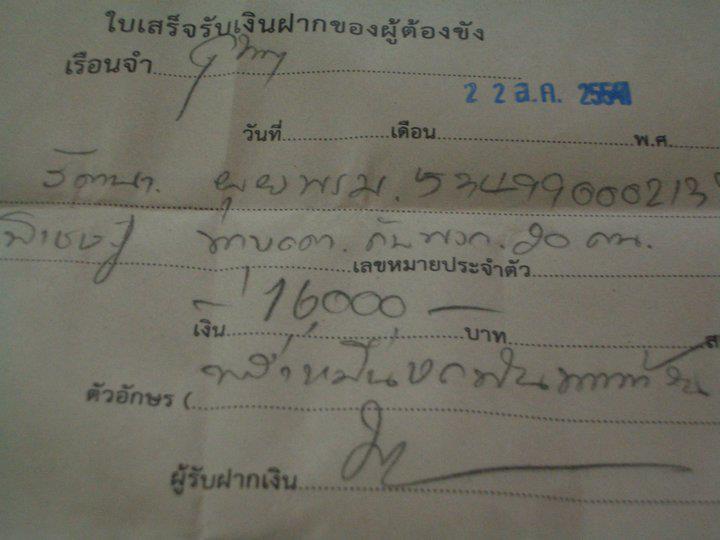 ใบเสร็จรับเงินฝากของผู้ต้องขัง
เรือนจำ
22 ส.ค. 2554
วันที่ เดือน พ.ศ.
รัตนา.
พิเชษฐ์ ทาบุดดา. กับพวก. 20 คน.
เลขหมายประจำตัว
เงิน 16,000 บาท ส
หนึ่งหมื่นหกพันบาทถ้วน
ตัวอักษร (
ผู้รับฝากเงิน